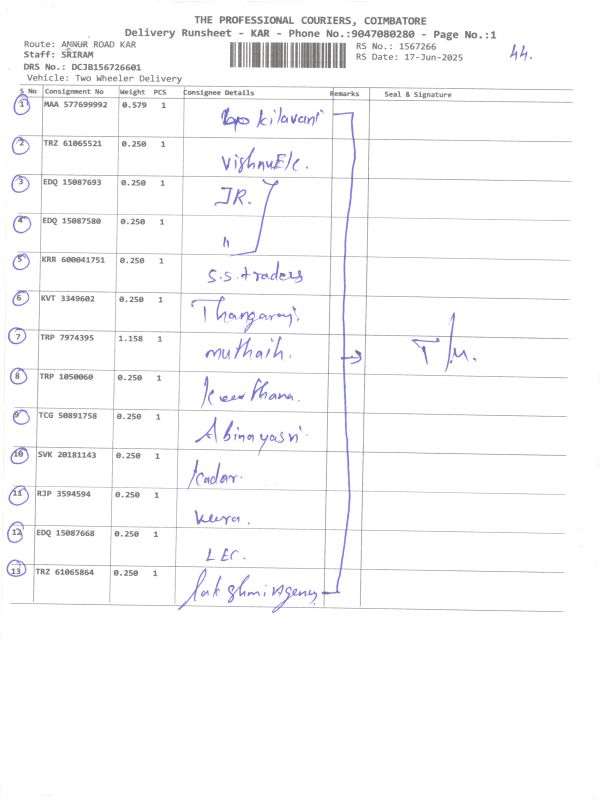 THE PROFESSIONAL COURIERS, COIMBATORE
Delivery Runsheet - KAR - Phone No.:9047080280 - Page No.:1
Route: ANNUR ROAD KAR RS No.: 1567266 44.
Staff: SRIRAM RS Date: 17-Jun-2025
DRS No.: DCJB156726601
Vehicle: Two Wheeler Delivery
S No Consignment No Weight PCS Consignee Details Remarks Seal & Signature
1 MAA 577699992 0.579 1 kilavani
2 TRZ 61065521 0.250 1 VishnuE/c.
3 EDQ 15087693 0.250 1 JR.
4 EDQ 15087580 0.250 1 "
5 KRR 600041751 0.250 1 S.S. traders
6 KVT 3349602 0.250 1 Thangaraj.
7 TRP 7974395 1.158 1 muthaih. T/M.
8 TRP 1050060 0.250 1 Keerthana.
9 TCG 50891758 0.250 1 Abinayasri.
10 SVK 20181143 0.250 1 Kadar.
11 RJP 3594594 0.250 1
12 EDQ 15087668 0.250 1 LEC.
13 TRZ 61065864 0.250 1 Lakshmi Agency